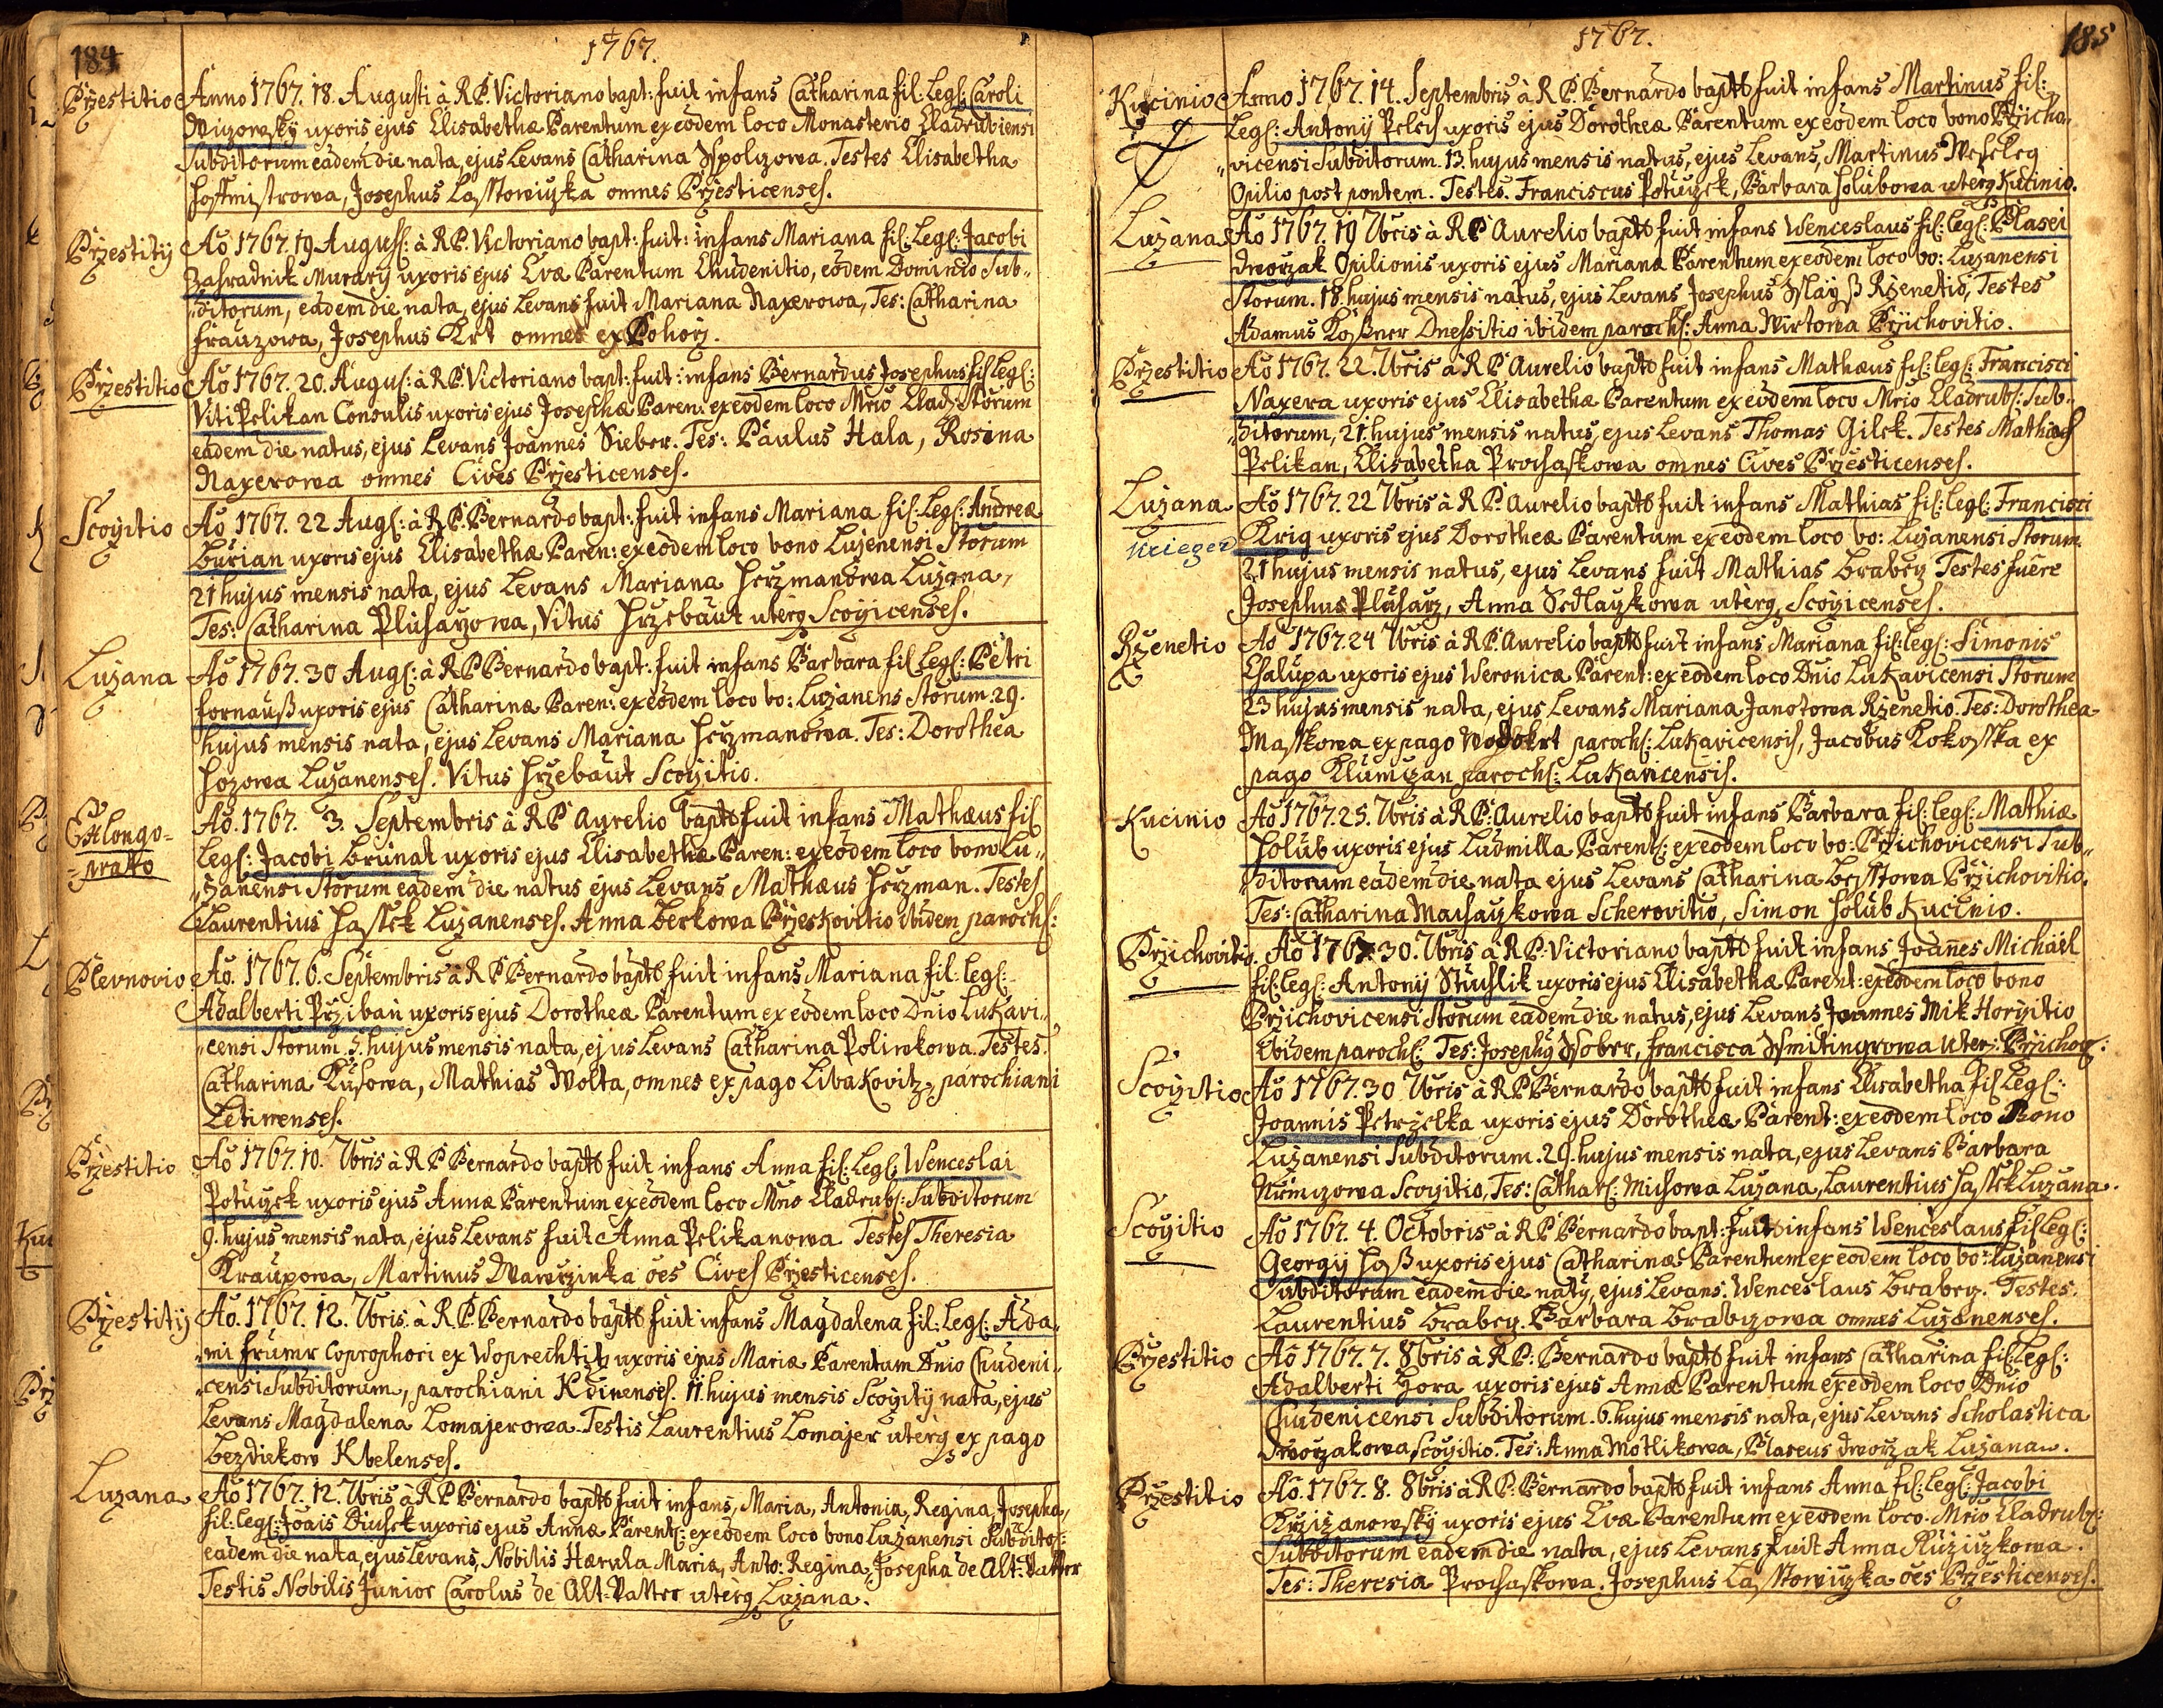 184
1767.
Przestitio
Anno 1767. 18. Augusti à R.P. Victoriano bapt: fuit infans Catharina fil: Leg: Caroli
uxoris ejus Elisabethæ Parentum ex eodem loco Monasterio Cladrubiensi
Subditorum eadem die nata, ejus Levans Catharina. Testes Elisabetha
Hoffmistrowa, Josephus omnes Przesticenses.
Przestitij
Ao 1767. 19 August: à R.P. Victoriano bapt: fuit: infans Mariana fil: Leg: Jacobi
Zahradnik Murarij uxoris ejus Evæ Parentum Chudenitio, eodem Dominio Sub„
„ditorum, eadem die nata, ejus Levans fuit Mariana Naxerowa, Tes: Catharina
Frauzowa, Josephus Krt omnes ex Pohorz.
Przestitio
Ao 1767. 20. Augus: à R.P. Victoriano bapt: fuit: infans Bernardus Josephus fil Leg:
Viti Pelikan Consulis uxoris ejus Josephæ Paren: ex eodem loco Mrio Clad: Storum
eadem die natus, ejus Levans Joannes Sieber. Tes: Paulus Hala, Rosina
Naxerowa omnes Cives Przesticenses.
Scozitio
Ao 1767. 22 Aug: à R.P. Bernardo bapt: fuit infans Mariana fil: Leg: Andreæ
Burian uxoris ejus Elisabethæ Paren: ex eodem loco bono Luzenensi Storum
21 hujus mensis nata, ejus Levans Mariana Herzmanowa Luzana,
Tes: Catharina Pluharzowa, Vitus Hrzebaut uterq Scozicenses.
Luzana
Ao 1767. 30 Aug: à R.P. Bernardo bapt: fuit infans Barbara fil Leg: Petri
Fornauß uxoris ejus Catharinæ Paren: ex eodem loco bo: Luzanens Storum. 29.
hujus mensis nata, ejus Levans Mariana Herzmanowa. Tes: Dorothea
Hozowa Luzanenses. Vitus Hrzebaut Scozitio.
E longo-
=prato
Ao. 1767. 3. Septembris à R.P. Aurelio bapts fuit infans Mathæus fil
Leg: Jacobi Brunat uxoris ejus Elisabethæ Paren: ex eodem loco bono Lu„
„zanensi Storum eadem die natus ejus Levans Mathæus Herzman. Testes
Laurentius Hassek Luzanenses. Anna Berkowa Przeskovitio ibidem paroch:
Plevnovio
Ao. 1767. 6. Septembris à R.P. Bernardo bapts fuit infans Mariana fil: leg:
Adalberti Prziban uxoris ejus Dorotheæ Parentum ex eodem loco Dnio Lukavi„
„censi Storum. 5. hujus mensis nata, ejus Levans Catharina Poliwkowa. Testes.
Catharina Kusowa, Mathias Wolta, omnes ex pago Libakovitz parochiani
Letinenses.
Przestitio
Ao 1767. 10. 7bris à R.P. Bernardo bapts fuit infans Anna fil: Leg: Wenceslai
Potuzek uxoris ejus Annæ Parentum ex eodem loco Mrio Cladrub: Subditorum
9. hujus mensis nata, ejus Levans fuit Anna Pelikanowa Testes Theresia
Kraupowa, Martinus Wawrzinka oes Cives Przesticenses.
Przestitij
Ao. 1767. 12. 7bris. à R.P. Bernardo bapts fuit infans Magdalena fil: Leg: Ada„
„mi Frumr Coprophori ex Woprechtitz uxoris ejus Mariæ Parentum Dnio Chudeni„
„censi Subditorum, parochiani Kdinenses. 11. hujus mensis Scozitij nata, ejus
Levans Magdalena Lomajerowa. Testis Laurentius Lomajer uterq ex pago
Bezdiekow Kbelenses.
Luzana
Ao 1767. 12. 7bris à R.P. Bernardo bapts fuit infans, Maria, Antonia, Regina, Josepha,
fil: leg: Joais uxoris ejus Annæ Parent: ex eodem loco bono Luzanensi Subdito:
eadem die nata, ejus Levans, Nobilis Maria, Anto: Regina, Josepha de Alt: Vatter
Testis Nobilis Junior Carolus de Alt-Vatter uterq Luzana.
1767.
185
Kucinio
Anno 1767. 14. Septembris à R.P. Bernardo bapts fuit infans Martinus fil:
Leg: Antonij Pelech uxoris ejus Dorotheæ Parentum ex eodem loco bono Przicho„
„vicensi Subditorum. 13. hujus mensis natus, ejus Levans, Martinus Weseleg
Opilio post pontem. Testes. Franciscus Potuzek, Barbara Holubowa uterq Kucinio.
Luzana
Ao 1767. 19 7bris à R.P. Aurelio bapts fuit infans Wenceslaus fil: leg: Blasei
Dworzak Opilionis uxoris ejus Mariana Parentum ex eodem loco bo: Luzanensi
Storum. 18. hujus mensis natus, ejus Levans Josephus Rzenetio, Testes
Adamus Dnessitio ibidem paroch: Anna Wirtowa Przichovitio.
Przestitio
Ao 1767. 22. 7bris à R.P. Aurelio bapts fuit infans Mathæus fil: leg: Francisci
Naxera uxoris ejus Elisabethæ Parentum ex eodem loco Mrio Cladrub: Sub„
„ditorum, 21. hujus mensis natus, ejus Levans Thomas Gilek. Testes Mathæus
Pelikan, Elisabetha Prochaskowa omnes Cives Przesticenses.
Luzana
Krieger
Ao 1767. 22 7bris à R.P. Aurelio bapts fuit infans Mathias fil: leg: Francisci
Krig uxoris ejus Dorotheæ Parentum ex eodem loco bo: Luzanensi Storum.
21 hujus mensis natus, ejus Levans fuit Mathias Brabetz Testes fuere
Josephus Pluharz, Anna Sedlaczkowa uterq Scozicenses.
Rzenetio
Ao 1767. 24 7bris à R.P. Aurelio bapts fuit infans Mariana fil: leg: Simonis
Chalupa uxoris ejus Weronicæ Parent: ex eodem loco Dnio Lukavicensi Storum
23 hujus mensis nata, ejus Levans Mariana Janotowa Rzenetio. Tes: Dorothea
Masskowa ex pago Wodokrt paroch: Lukavicensis, Jacobus Kokosska ex
pago Klumtzan paroch: Lukavicensis.
Kucinio
Ao 1767. 25. 7bris à R.P. Aurelio bapts fuit infans Barbara fil: leg: Mathiæ
Holub uxoris ejus Ludmilla Parent: ex eodem loco bo: Przichovicensi Sub„
„ditorum eadem die nata ejus Levans Catharina Przichovitio.
Tes: Catharina Machaczkowa Scherovitio, Simon Holub Kucinio.
Przichovitio.
Ao 1767. 30. 7bris à R.P. Victoriano bapts fuit infans Joannes Michael
fil: leg: Antonij Stuchlik uxoris ejus Elisabethæ Parent: ex eodem loco bono
Przichovicensi Storum eadem die natus, ejus Levans Joannes Mik Horzitio
Ibidem paroch: Tes: Josephq, Francisca uter: Przichow:
Scozitio
Ao 1767. 30 7bris à R.P. Bernardo bapts fuit infans Elisabetha fil Leg:
Joannis Petrzelka uxoris ejus Dorotheæ Parent: ex eodem loco Bono
Luzanensi Subditorum. 29. hujus mensis nata, ejus Levans Barbara
Nimczowa Scozitio, Tes: Cathar: Michowa Luzana, Laurentius Hassek Luzana.
Scozitio
Ao 1767. 4. Octobris à R.P. Bernardo bapt: fuit infans Wenceslaus fil Leg:
Georgij Haß uxoris ejus Catharinæ Parentum ex eodem loco bo: Luzanensi
Subditorum eadem die natq, ejus Levans. Wenceslaus Brabetz. Testes.
Laurentius Brabetz. Barbara Brabczowa omnes Luzanenses.
Przestitio
Ao 1767. 7. 8bris à R.P: Bernardo bapts fuit infans Catharina fil: Leg:
Adalberti Hora uxoris ejus Annæ Parentum ex eodem loco Dnio
Chudenicensi Subditorum. 6. hujus mensis nata, ejus Levans Scholastica
Dworzakowa Scozitio. Tes: Anna Motlikowa, Blaseus Dworzak Luzana.
Przestitio
Ao. 1767. 8. 8bris à R.P: Bernardo bapts fuit infans Anna fil: leg: Jacobi
Krzizanowsky uxoris ejus Evæ Parentum ex eodem loco. Mrio Cladrub:
Subditorum eadem die nata, ejus Levans fuit Anna Ruziczkowa.
Tes: Theresia Prochaskowa. Josephus oes Przesticenses.